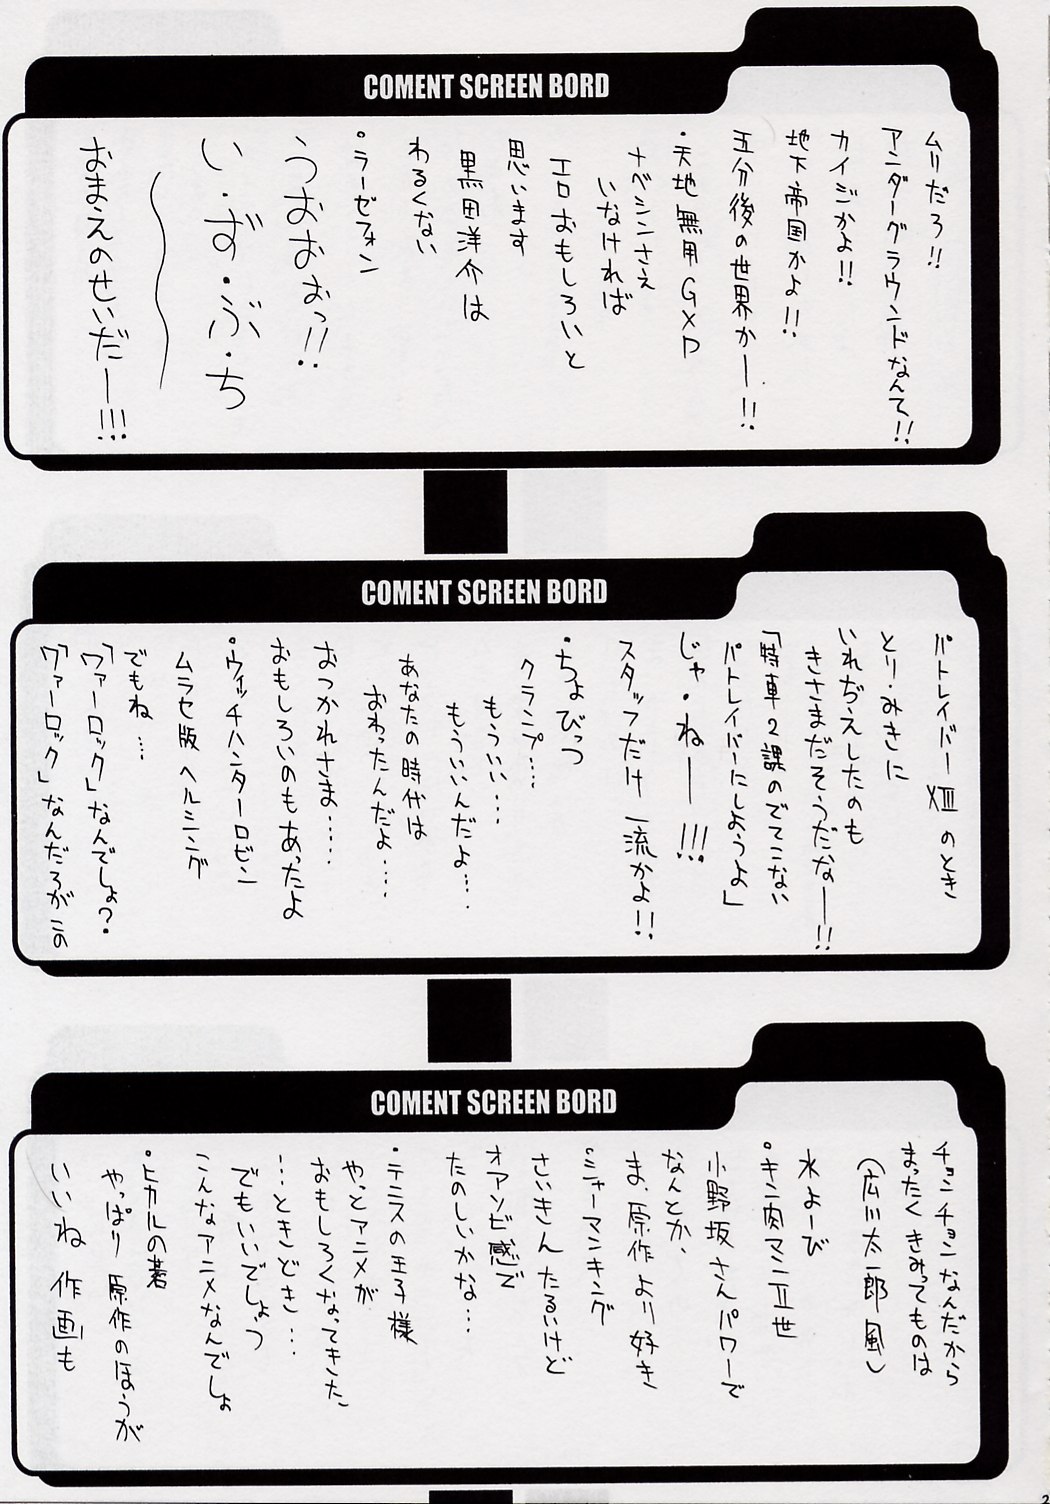 COMENT SCREEN BORD
ムリだろ!!
アンダーグラウンドなんて!!
カイジかよ!!
地下帝国かよ!!
五分後の世界かー!!
・天地無用GXP
ナベシンさえ
いなければ
エロおもしろいと
思います
黒田洋介は
わるくない
・ラーゼフォン
うおおおっ!!
い・ず・ぶ・ち
おまえのせいだー!!!
COMENT SCREEN BORD
パトレイバー XIII のとき
とり・みきに
いれぢえしたのも
きさまだそうだなー!!
「特車2課のでてこない
パトレイバーにしようよ」
じゃ・ねー!!!
スタッフだけ一流かよ!!
・ちょびっつ
クランプ…
もういい…
もういいんだよ…
あなたの時代は
おわったんだよ…
おつかれさま……
おもしろいのもあったよ
・ウィッチハンターロビン
ムラセ版ヘルシング
でもね…
「ワァーロック」なんでしょ?
「ワァーロック」なんだろがこの
COMENT SCREEN BORD
チョンチョンなんだから
まったくきみってものは
(広川太一郎風)
水よーび
・キン肉マンII世
小野坂さんパワーで
なんとか、
ま、原作より好き
・シャーマンキング
さいきんたるいけど
オアソビ感で
たのしいかな…
・テニスの王子様
やっとアニメが
おもしろくなってきた、
…ときどき…
でもいいでしょっ
こんなアニメなんでしょ
・ヒカルの碁
やっぱり 原作のほうが
いいね 作画も
2